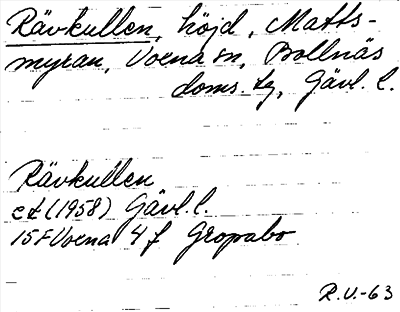 Rävkullen, höjd, Matts-
myran, Voxna sn, Bollnäs
doms. tg, Gävl. l.
Rävkullen
ek (1958) Gävl. l.
15F Voxna 4 f Gropabo
R.U.-63